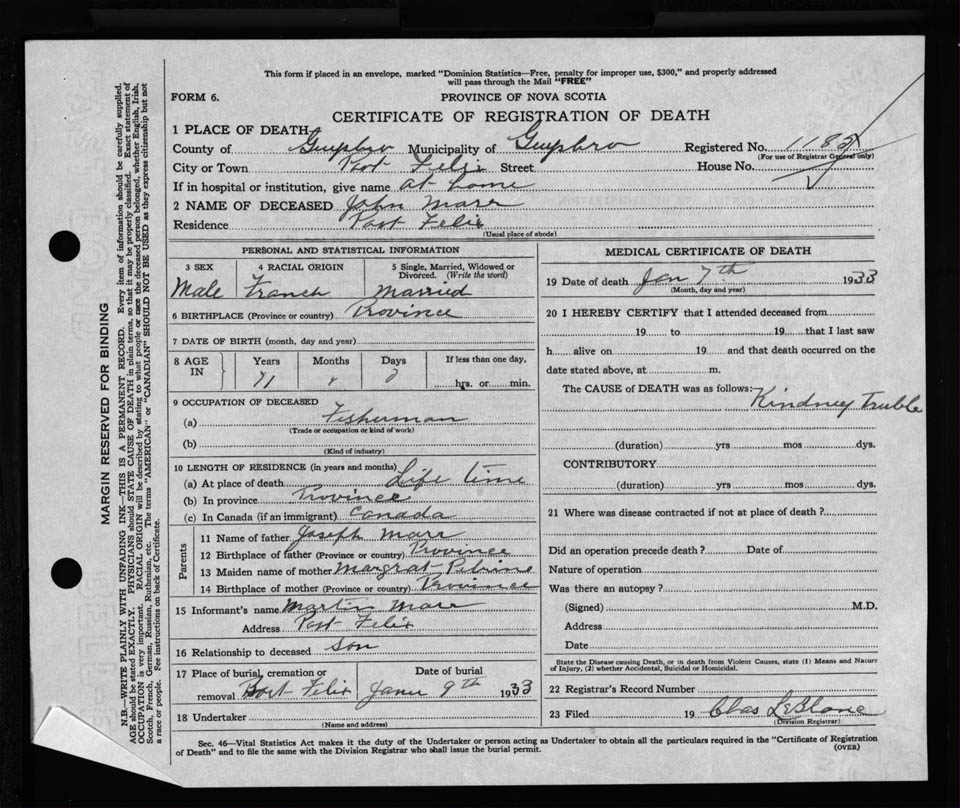 This form if placed in an envelope, marked "Dominion Statistics—Free, penalty for improper use, $300," and properly addressed
will pass through the Mail "FREE"
FORM 6.
PROVINCE OF NOVA SCOTIA
CERTIFICATE OF REGISTRATION OF DEATH
1 PLACE OF DEATH
County of Guysbro Municipality of Guysbro Registered No. 1182
(For use of Registrar General only)
City or Town Port Felix Street House No.
If in hospital or institution, give name at home
2 NAME OF DECEASED John Marr
Residence Port Felix
(Usual place of abode)
PERSONAL AND STATISTICAL INFORMATION
3 SEX 4 RACIAL ORIGIN 5 Single, Married, Widowed or Divorced. (Write the word)
Male Franch Married
6 BIRTHPLACE (Province or country) Province
7 DATE OF BIRTH (month, day and year)
8 AGE IN Years Months Days If less than one day,
71 hrs. or min.
9 OCCUPATION OF DECEASED
(a) Fisherman
(Trade or occupation or kind of work)
(b)
(Kind of industry)
10 LENGTH OF RESIDENCE (in years and months)
(a) At place of death Life time
(b) In province Province
(c) In Canada (if an immigrant) Canada
Parents
11 Name of father Joseph Marr
12 Birthplace of father (Province or country) Province
13 Maiden name of mother Margrat
14 Birthplace of mother (Province or country) Province
15 Informant's name Martin Marr
Address Port Felix
16 Relationship to deceased son
17 Place of burial, cremation or removal Port Felix Date of burial Janu 9th 1933
18 Undertaker
(Name and address)
MEDICAL CERTIFICATE OF DEATH
19 Date of death Jan 7th 1933
(Month, day and year)
20 I HEREBY CERTIFY that I attended deceased from
19 to 19 that I last saw
h alive on 19 and that death occurred on the
date stated above, at m.
The CAUSE of DEATH was as follows: Kindney Truble
(duration) yrs mos dys.
CONTRIBUTORY
(duration) yrs mos dys.
21 Where was disease contracted if not at place of death?
Did an operation precede death? Date of
Nature of operation
Was there an autopsy?
(Signed) M.D.
Address
Date
State the Disease causing Death, or in death from Violent Causes, state (1) Means and Nature
of Injury, (2) whether Accidental, Suicidal or Homicidal.
22 Registrar's Record Number
23 Filed 19 Chas LeBlanc
(Division Registrar)
Sec. 46—Vital Statistics Act makes it the duty of the Undertaker or person acting as Undertaker to obtain all the particulars required in the "Certificate of Registration
of Death" and to file the same with the Division Registrar who shall issue the burial permit.
(OVER)
MARGIN RESERVED FOR BINDING
N.B.—WRITE PLAINLY WITH UNFADING INK—THIS IS A PERMANENT RECORD. Every item of information should be carefully supplied.
AGE should be stated EXACTLY. PHYSICIANS should STATE CAUSE OF DEATH in plain terms, so that it may be properly classified. Exact statement of
OCCUPATION is very important. RACIAL ORIGIN will be described by stating to what people or race the deceased person belonged, whether English, Irish,
Scotch, French, German, Russian, Ruthenian, etc. The terms "AMERICAN" or "CANADIAN" SHOULD NOT BE USED as they express citizenship but not
a race or people. See instructions on back of Certificate.